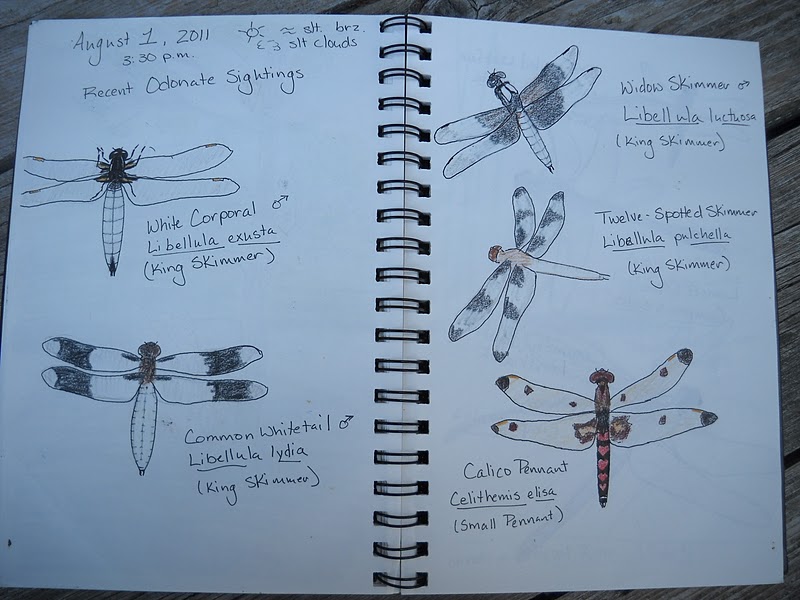 August 1, 2011
3:30 p.m.
≈ slt. brz.
slt clouds
Recent Odonate Sightings
White Corporal ♂
Libellula exusta
(King Skimmer)
Common Whitetail ♂
Libellula lydia
(King Skimmer)
Widow Skimmer ♂
Libellula luctuosa
(King Skimmer)
Twelve-Spotted Skimmer
Libellula pulchella
(King Skimmer)
Calico Pennant
Celithemis elisa
(Small Pennant)